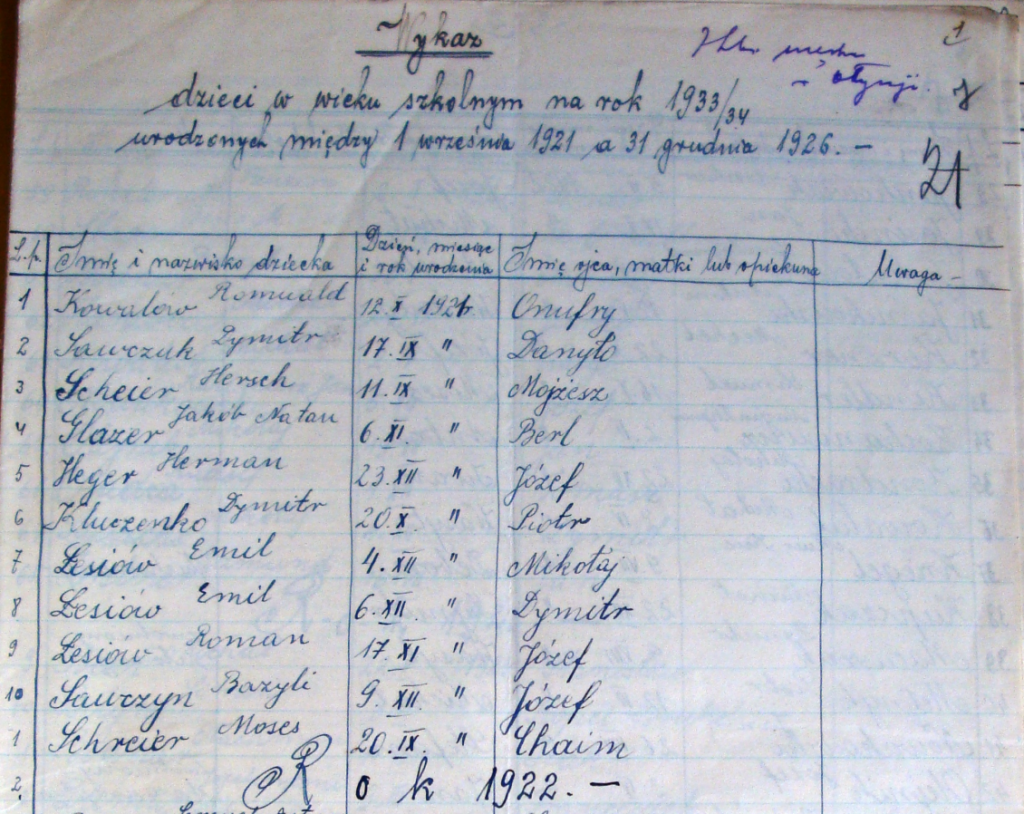 Wykaz
1
dzieci w wieku szkolnym na rok 1933/34
urodzonych między 1 września 1921 a 31 grudnia 1926. –
21
L.p. Imię i nazwisko dziecka Dzień, miesiąc i rok urodzenia Imię ojca, matki lub opiekuna Uwaga –
1 Kowalów Romuald 12. X 1921. Onufry
2 Sawczuk Dymitr 17. IX " Danyło
3 Scheier Hersch 11. IX " Mojżesz
4 Glazer Jakób Natan 6. XI " Berl
5 Heger Herman 23. XII " Józef
6 Kluczenko Dymitr 20. X " Piotr
7 Łesiów Emil 4. XII " Mikołaj
8 Łesiów Emil 6. XII " Dymitr
9 Łesiów Roman 17. XI " Józef
10 Sawczyn Bazyli 9. XII " Józef
1 Schreier Moses 20. IX. " Chaim
2. R o k 1922. –